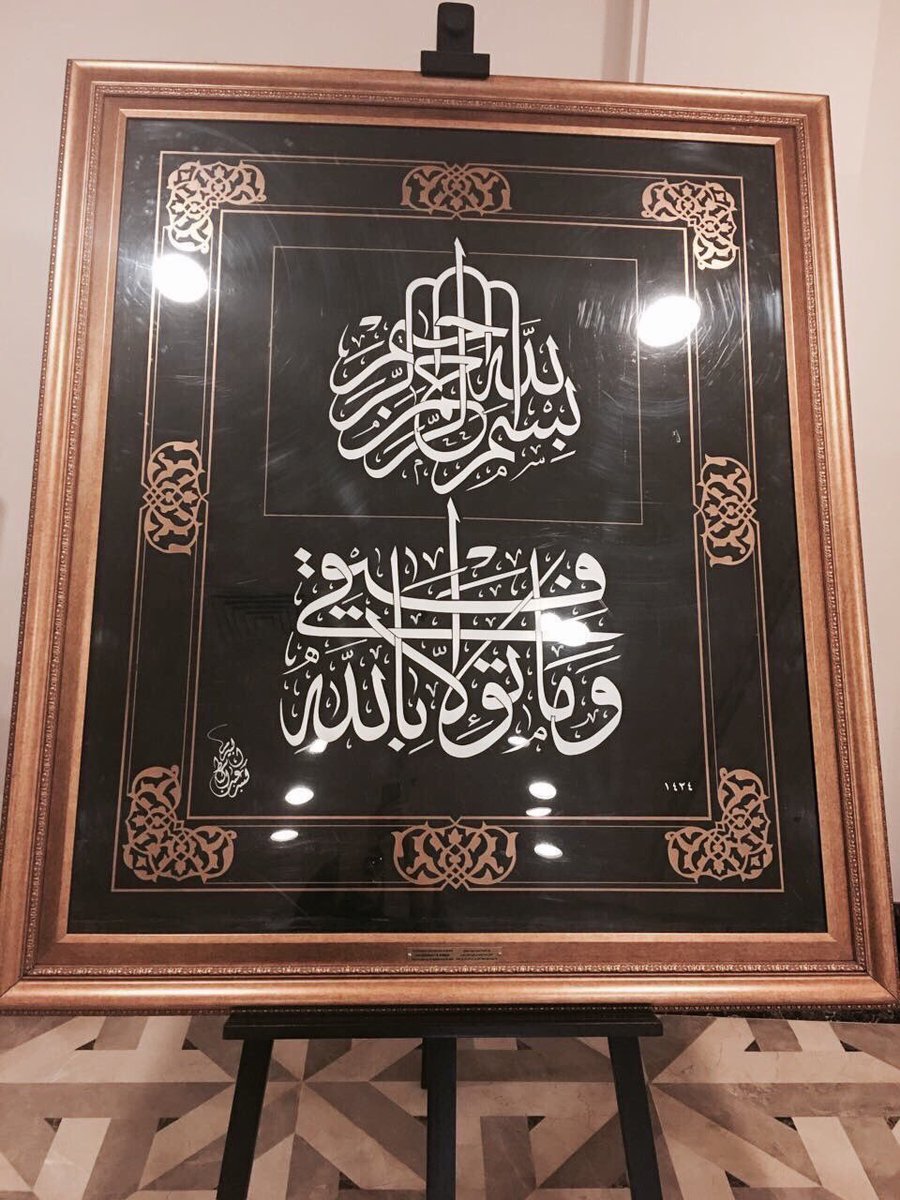 بِسْمِ اللَّهِ الرَّحْمٰنِ الرَّحِيمِ
وَمَا تَوْفِيقِي إِلَّا بِاللَّهِ
١٤٣٤